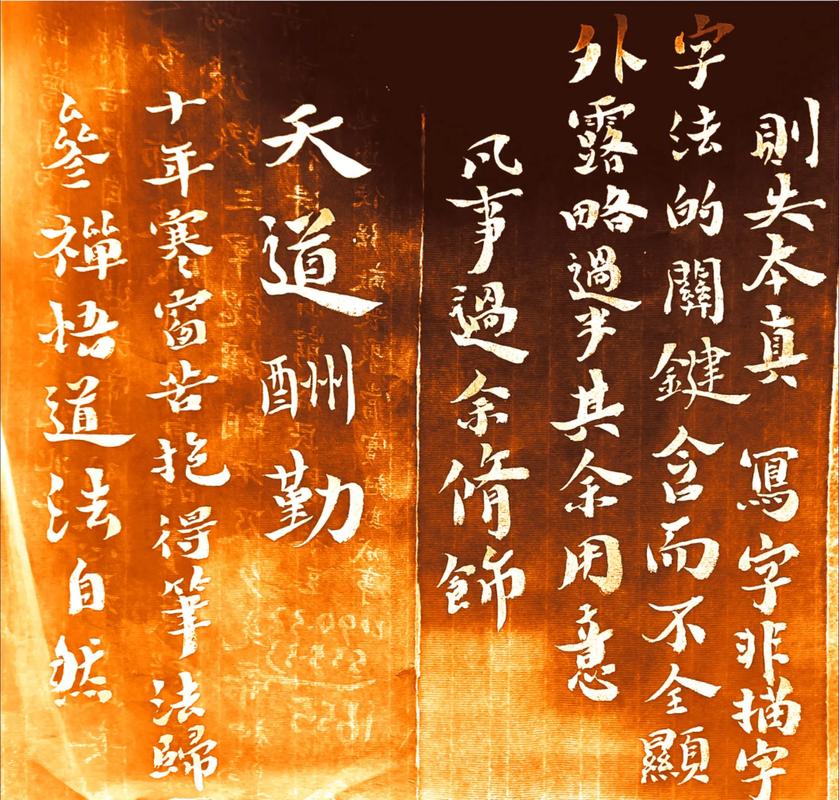 凡事過余脩飾
則失本真 寫字非描字
字法的關鍵含而不全顯
外露略過半其余用意
天道酬勤
十年寒窗苦抱得筆法歸
參禪悟道法自然